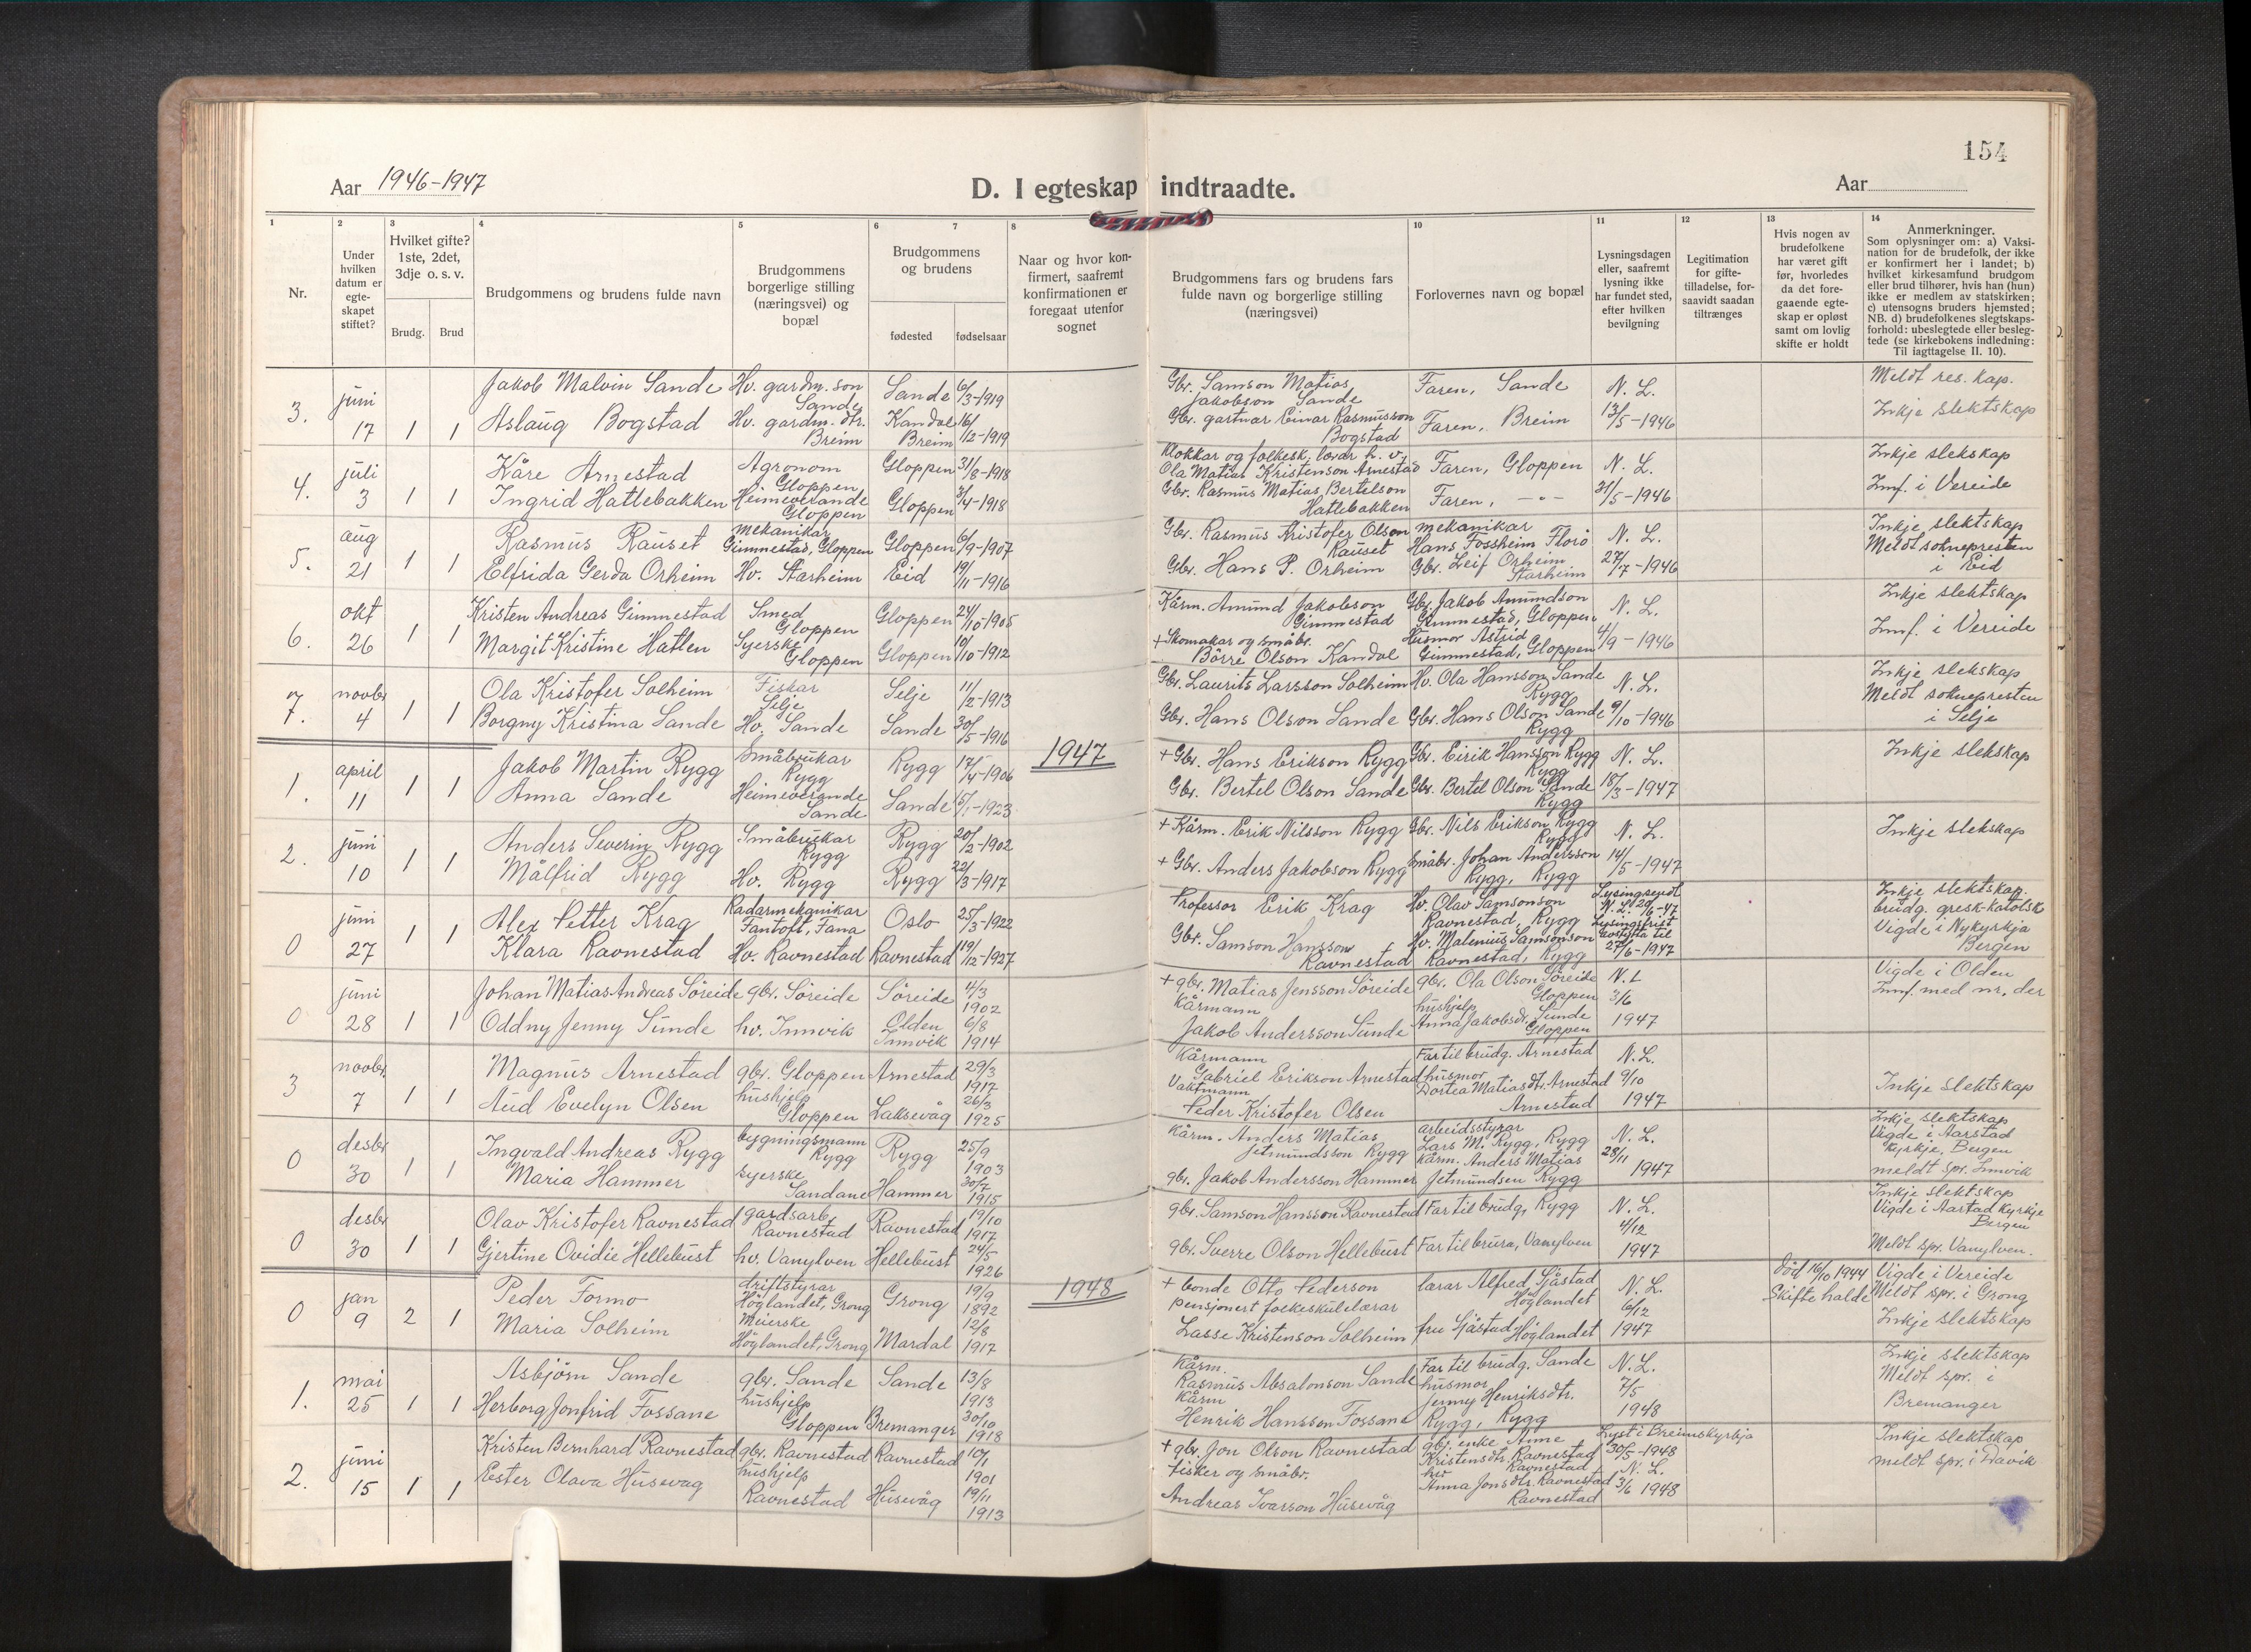 154
Aar 1946-1947
D. I egteskap indtraadte.
Aar
1 2 3 4 5 6 7 8 10 11 12 13 14
Nr.
Under hvilken datum er egte-skapet stiftet?
Hvilket gifte? 1ste, 2det, 3dje o. s. v.
Brudg. Brud
Brudgommens og brudens fulde navn
Brudgommens borgerlige stilling (næringsvei) og bopæl
Brudgommens og brudens
fødested fødselsaar
Naar og hvor kon-firmert, saafremt konfirmationen er foregaat utenfor sognet
Brudgommens fars og brudens fars fulde navn og borgerlige stilling (næringsvei)
Forlovernes navn og bopæl
Lysningsdagen eller, saafremt lysning ikke har fundet sted, efter hvilken bevilgning
Legitimation for gifte-tilladelse, for-saavidt saadan tiltrænges
Hvis nogen av brudefolkene har været gift før, hvorledes da det fore-gaaende egte-skap er opløst samt om lovlig skifte er holdt
Anmerkninger.
Som oplysninger om: a) Vaksi-nation for de brudefolk, der ikke er konfirmert her i landet; b) hvilket kirkesamfund brudgom eller brud tilhører, hvis han (hun) ikke er medlem av statskirken; c) utensogns bruders hjemsted; NB. d) brudefolkenes slegtskaps-forhold: ubeslegtede eller besleg-tede (se kirkebokens indledning: Til iagttagelse II. 10).
3. juni 17 1 1
Jakob Malvin Sande Hv. gardm. son Sande Sande 6/3-1919
Gbr. Samson Matias Jakobson Sande Faren, Sande N. L. Meldt res. kap.
Aslaug Bogstad Hv. gardm. dtr. Breim Kandal Breim 16/12-1919
Gbr. gartnar Einar Rasmusson Bogstad Faren, Breim 13/5-1946 Inkje slektskap
4. juli 3 1 1
Kåre Arnestad Agronom Gloppen Gloppen 31/8-1918
Klokkar og folkesk. lærar h. v. Ola Matias Kristenson Arnestad Faren, Gloppen N. L. Inkje slekskap
Ingrid Hattlebakken Heimeverande Gloppen Gloppen 3/4-1918
Gbr. Rasmus Matias Bertelson Hatlebakken Faren, -"- 31/5-1946 Innf. i Vereide
5. aug 21 1 1
Rasmus Rauset mekanikar Gimmestad, Gloppen Gloppen 6/9-1907
Gbr. Rasmus Kristofer Olson Rauset mekanikar Hans Fossheim Florø N. L. Inkje slektskap
Elfrida Gerda Orheim Hv. Starheim Eid 19/11-1916
Gbr. Hans P. Orheim Gbr. Leif Orheim Starheim 27/7-1946 Meldt soknepresten i Eid
6. okt 26 1 1
Kristen Andreas Gimmestad Smed Gloppen Gloppen 24/10-1905
Kårm. Amund Jakobson Gimmestad Gbr. Jakob Amundson Gimmestad, Gloppen N. L. Inkje slektskap
Margit Kristine Hatlen Syerske Gloppen Gloppen 10/10-1912
+ Skomakar og småbr. Börre Olson Kandal Husmor Astrid Gimmestad, Gloppen 4/9-1946 Innf. i Vereide
7. novbr 4 1 1
Ola Kristofer Solheim Fiskar Selje Selje 11/2-1913
Gbr. Laurits Larsson Solheim Hv. Ola Hansson Sande Rygg N. L. Inkje slekskap
Borgny Kristina Sande Hv. Sande Sande 30/5-1916
Gbr. Hans Olson Sande Gbr. Hans Olson Sande Rygg 9/10-1946 Meldt soknepresten i Selje
1947
1. april 11 1 1
Jakob Martin Rygg Småbrukar Rygg Rygg 17/4-1906
+ Gbr. Hans Erikson Rygg Gbr. Eirik Hansson Rygg Rygg N. L. Inkje slekskap
Anna Sande Heimeverande Sande Sande 15/1-1923
Gbr. Bertel Olson Sande Gbr. Bertel Olson Sande Rygg 18/3-1947
2. juni 10 1 1
Anders Severin Rygg Småbrukar Rygg Rygg 20/2-1902
+ Kårm. Erik Nilsson Rygg Gbr. Nils Erikson Rygg Rygg N. L. Inkje slekskap
Målfrid Rygg Hv. Rygg Rygg 22/3-1917
+ Gbr. Anders Jakobson Rygg Småbr. Johan Andersson Rygg, Rygg 14/5-1947
0 juni 27 1 1
Alex Petter Krag Radarmekanikar Fantoft, Fana Oslo 25/3-1922
Professor Erik Krag Hv. Olav Samsonson Ravnestad, Rygg N. L. 20/6-47 Inkje slektskap. brudg. gresk-katolsk
Klara Ravnestad Hv. Ravnestad Ravnestad 19/12-1927
Gbr. Samson Hansson Ravnestad Hv. Matenius Samsonson Ravnestad, Rygg Lysingsfrist til 27/6-1947 Vigde i Nykyrkja Bergen
0 juni 28 1 1
Johan Matias Andreas Söreide gbr. Söreide Söreide 4/3 1902
+ gbr. Matias Jensson Söreide gbr. Ola Olson Söreide Gloppen N. L Vigde i Olden
Oddny Jenny Sunde hv. Innvik Olden Innvik 6/8 1914
Kårmann Jakob Andersson Sunde hushjelp Anna Jakobsdtr. Sunde Gloppen 3/6 1947 Innf. med nr. der
3 novbr. 7 1 1
Magnus Arnestad gbr. Gloppen Arnestad 29/3 1917
Kårmann Gabriel Erikson Arnestad Far til brudg. Arnestad N. L.
Aud Evelyn Olsen hushjelp Gloppen Laksevåg 26/3 1925
Vaktmann Peder Kristofer Olsen husmor Dortea Matiasdtr. Arnestad Arnestad 9/10 1947 Inkje slektskap
0 desbr 30 1 1
Ingvald Andreas Rygg bygningsmann Rygg Rygg 25/9 1903
Kårm. Anders Matias Jetmundsson Rygg arbeidsstyrar Lars M. Rygg, Rygg N. L. Inkje slektskap Vigde i Aarstad kyrkje, Bergen
Maria Hammer syerske Sandane Hammer 30/7 1915
gbr. Jakob Andersson Hammer kårm. Anders Matias Jetmundsen Rygg 28/11 1947 meldt spr. Innvik
0 desbr 30 1 1
Olav Kristofer Ravnestad gardsarb. Ravnestad Ravnestad 19/10 1917
gbr. Samson Hansson Ravnestad Far til brudg, Rygg N. L. Inkje slektskap Vigde i Aarstad kyrkje Bergen
Gjertine Ovidie Hellebust hv. Vanylven Hellebust 24/5 1926
gbr. Sverre Olson Hellebust Far til brura, Vanylven 4/12 1947 Meldt spr. Vanylven.
1948
0 jan 9 2 1
Peder Formo driftstyrar Höylandet, Grong Grong 19/9 1892
+ bonde Otto Pederson lærar Alfred Sjåstad Höylandet N. L. död 16/10 1944 Skifte halde Vigde i Vereide Meldt spr. i Grong
Maria Solheim Meierske Höylandet, Grong Mardal 12/8 1917
pensjonert folkeskulelærar Lasse Kristenson Solheim fru Sjåstad Höylandet 6/12 1947 Inkje slektskap
1. mai 25 1 1
Asbjörn Sande gbr. Sande Sande 13/8 1913
Kårm. Rasmus Absalonson Sande Far til brudg. Sande N. L. Inkje slektskap
Herborg Jonfrid Fossane hushjelp Gloppen Bremanger 30/10 1918
Kårm Henrik Hansson Fossane husmor Jenny Henriksdtr. Rygg, Rygg 7/5 1948 Meldt spr. i Bremanger
2. juni 15 1 1
Kristen Bernhard Ravnestad gbr. Ravnestad Ravnestad 10/1 1901
+ gbr. Jon Olson Ravnestad gbr. enke Anne Kristensdtr. Ravnestad Ravnestad Lyst i Breimskyrkja 30/5-1948 Inkje slektskap
Ester Olava Husevåg hushjelp Ravnestad Husevåg 19/11 1913
Fisker og småbr. Andreas Ivarson Husevåg hv Anna Jonsdtr. Ravnestad Ravnestad N. L. 3/6 1948 meldt spr. i Davik